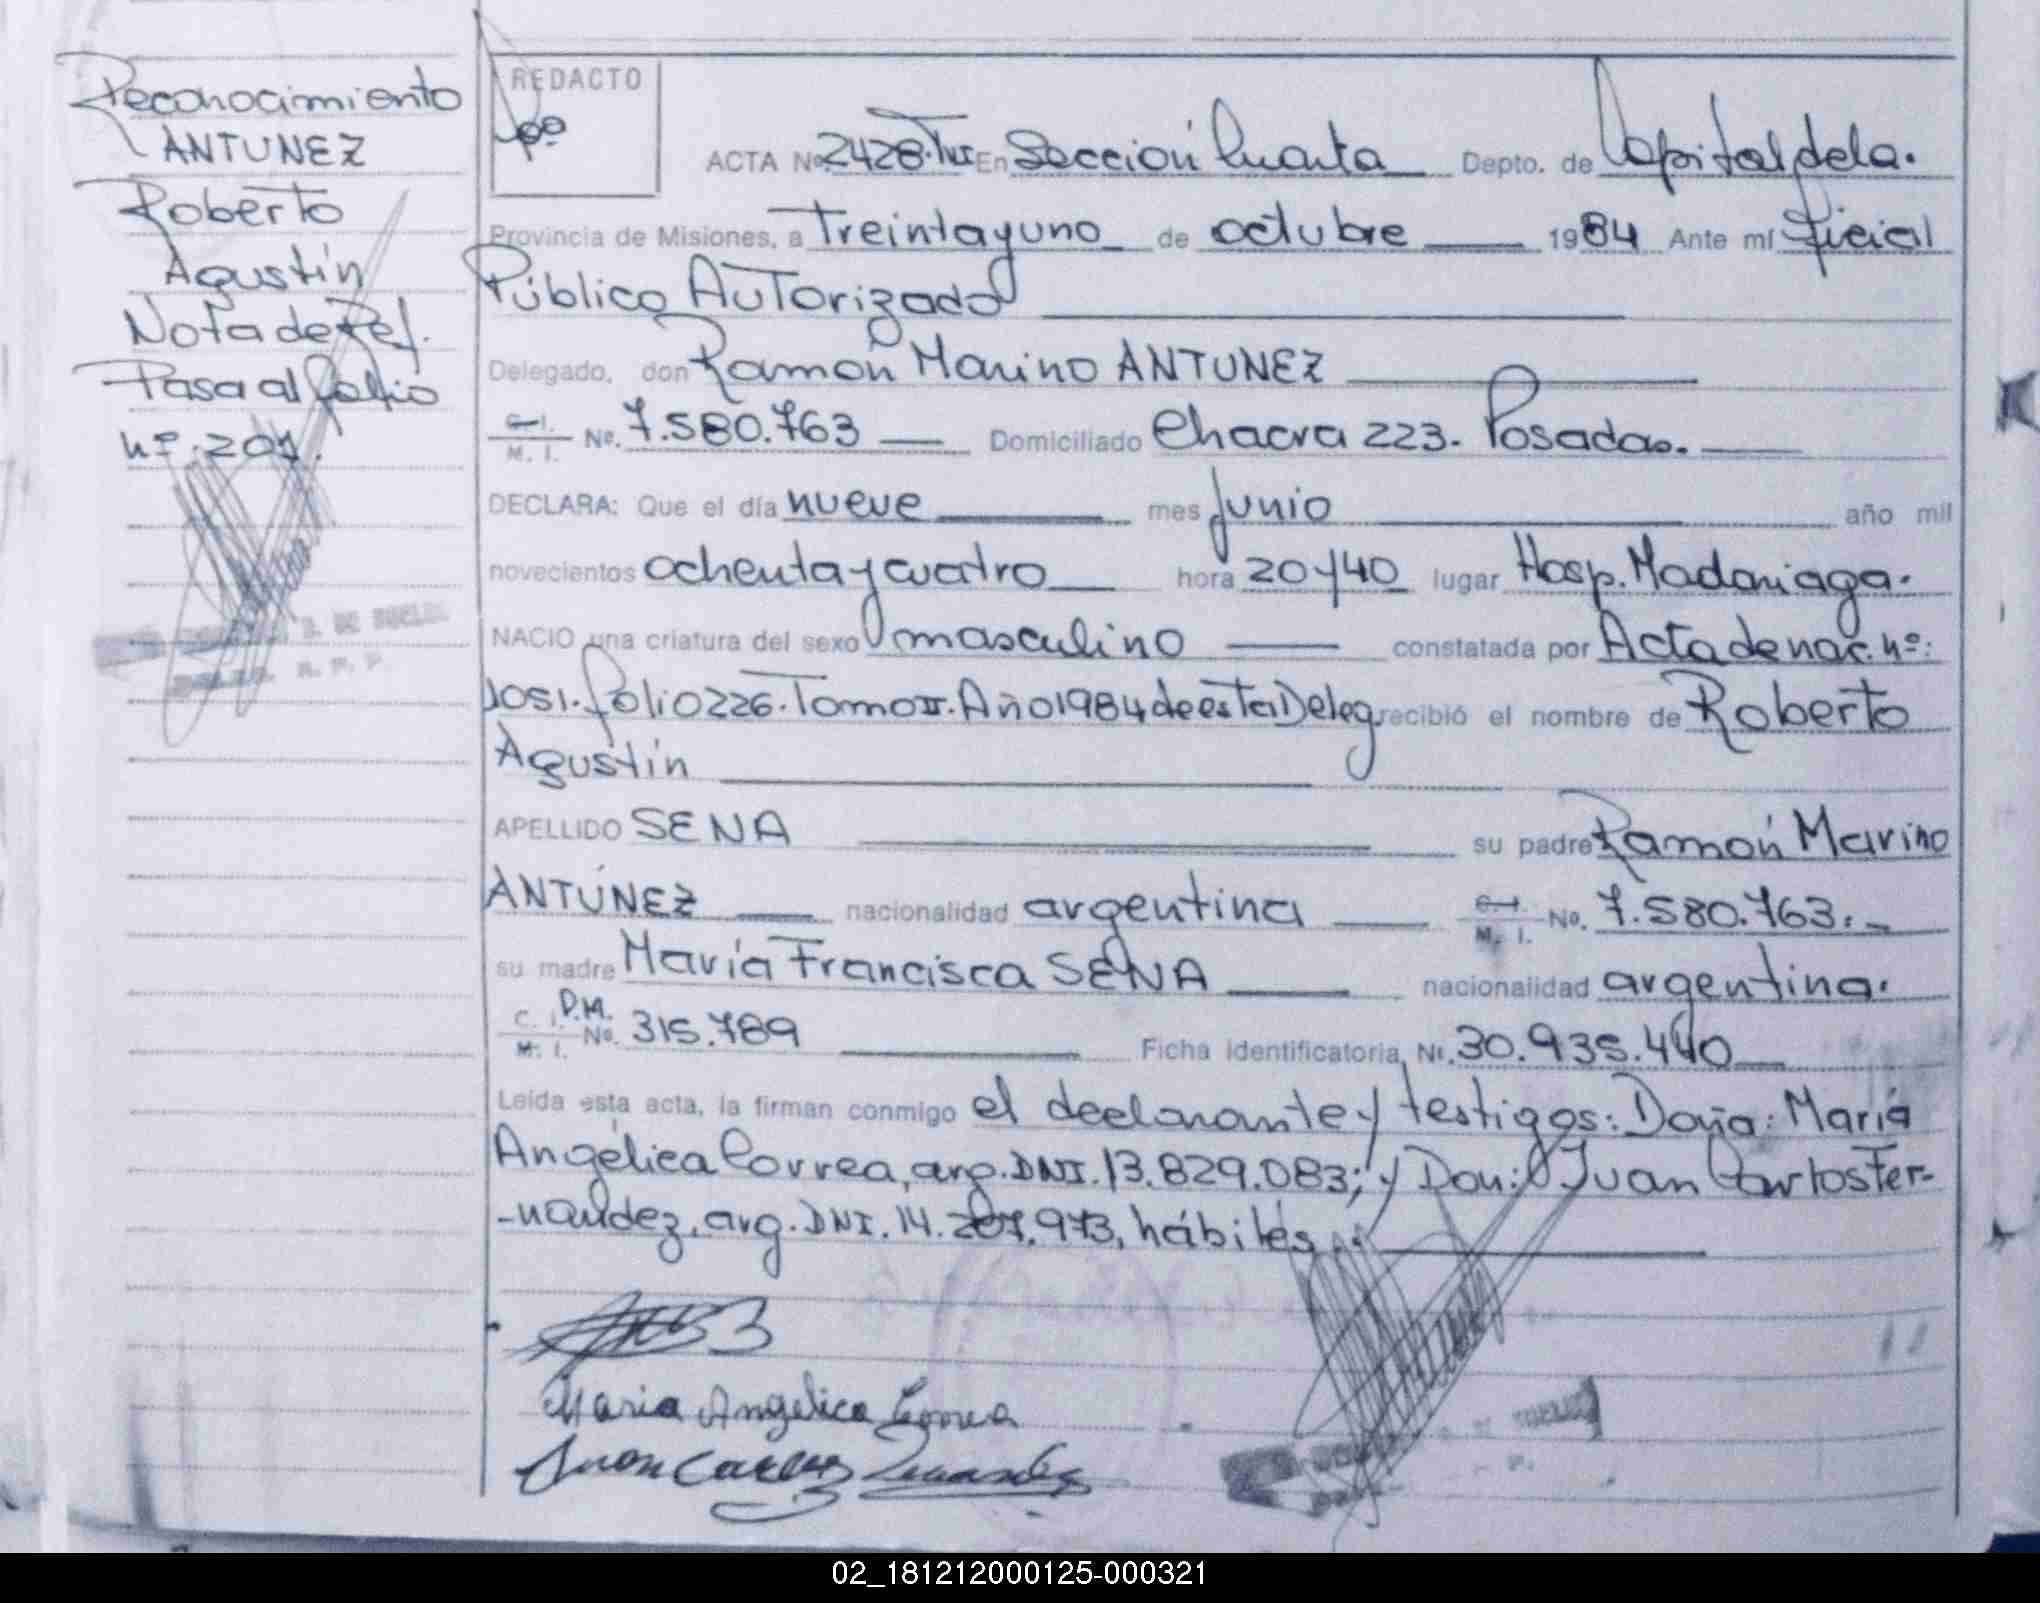 Reconocimiento
ANTUNEZ
Roberto
Agustín
Nota de Ref.
Pasa al folio
nº. 201.
REDACTO
ACTA Nº 2428. TIII En Sección Cuarta Depto. de Capital de la.
Provincia de Misiones, a Treinta y uno de octubre 1984 Ante mí Oficial
Público Autorizado
Delegado, don Ramón Marino ANTUNEZ
C. I. M. I. Nº. 7.580.763 Domiciliado Chacra 223. Posadas.
DECLARA: Que el día nueve mes Junio año mil
novecientos ochenta y cuatro hora 20 y 40 lugar Hosp. Madariaga.
NACIO una criatura del sexo masculino constatada por Acta de nac. nº:
1051. folio 226. Tomo II. Año 1984 de esta Deleg recibió el nombre de Roberto
Agustín
APELLIDO SENA su padre Ramón Marino
ANTÚNEZ nacionalidad argentina C. I. M. I. Nº. 7.580.763.
su madre María Francisca SENA nacionalidad argentina.
C. I. M. I. P.M. Nº. 315.789 Ficha identificatoria, Nº. 30.935.440
Leída esta acta, la firman conmigo el declarante y testigos: Doña: María
Angélica Correa, arg. DNI. 13.829.083; y Don: Juan Carlos Fer-
-nandez, arg. DNI. 14. 973, hábiles.
Maria Angelica Correa
Juan Carlos Fernandez
02_181212000125-000321